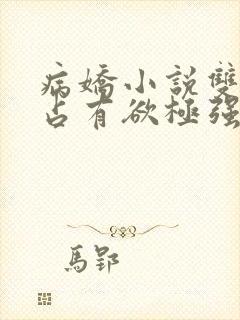 病嬌小說雙
占有欲極强
馬郢